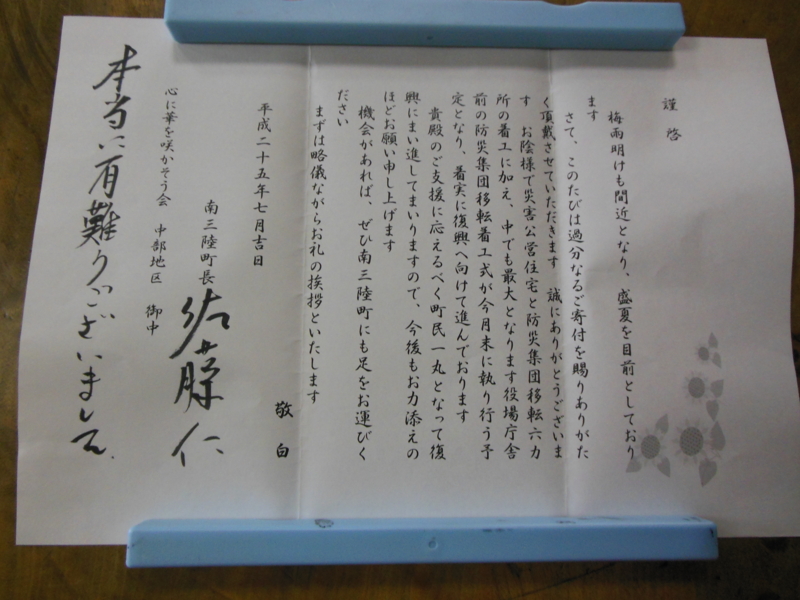 謹啓
梅雨明けも間近となり、盛夏を目前としており
ます
さて、このたびは過分なるご寄付を賜りありがた
く頂戴させていただきます　誠にありがとうございま
す　お陰様で災害公営住宅と防災集団移転六カ
所の着工に加え、中でも最大となります役場庁舎
前の防災集団移転着工式が今月末に執り行う予
定となり、着実に復興へ向けて進んでおります
貴殿のご支援に応えるべく町民一丸となって復
興にまい進してまいりますので、今後もお力添えの
ほどお願い申し上げます
機会があれば、ぜひ南三陸町にも足をお運びく
ださい
まずは略儀ながらお礼の挨拶といたします
敬白
平成二十五年七月吉日
南三陸町長　佐藤仁
心に華を咲かそう会　中部地区　御中
本当に有難うございました。